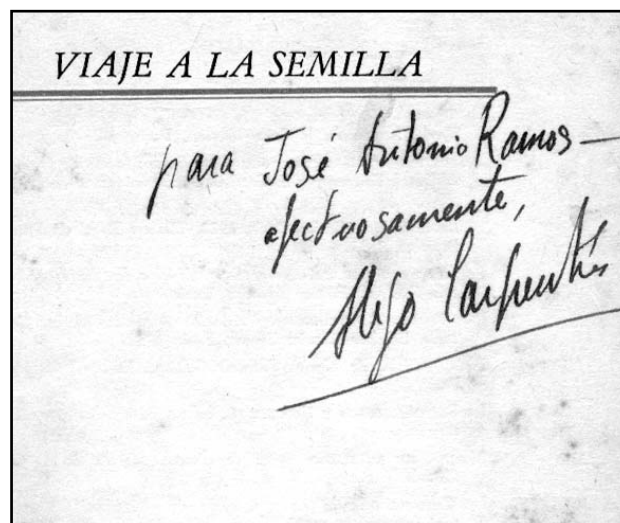 VIAJE A LA SEMILLA
para José Antonio Ramos —
afectuosamente,
Alejo Carpentier